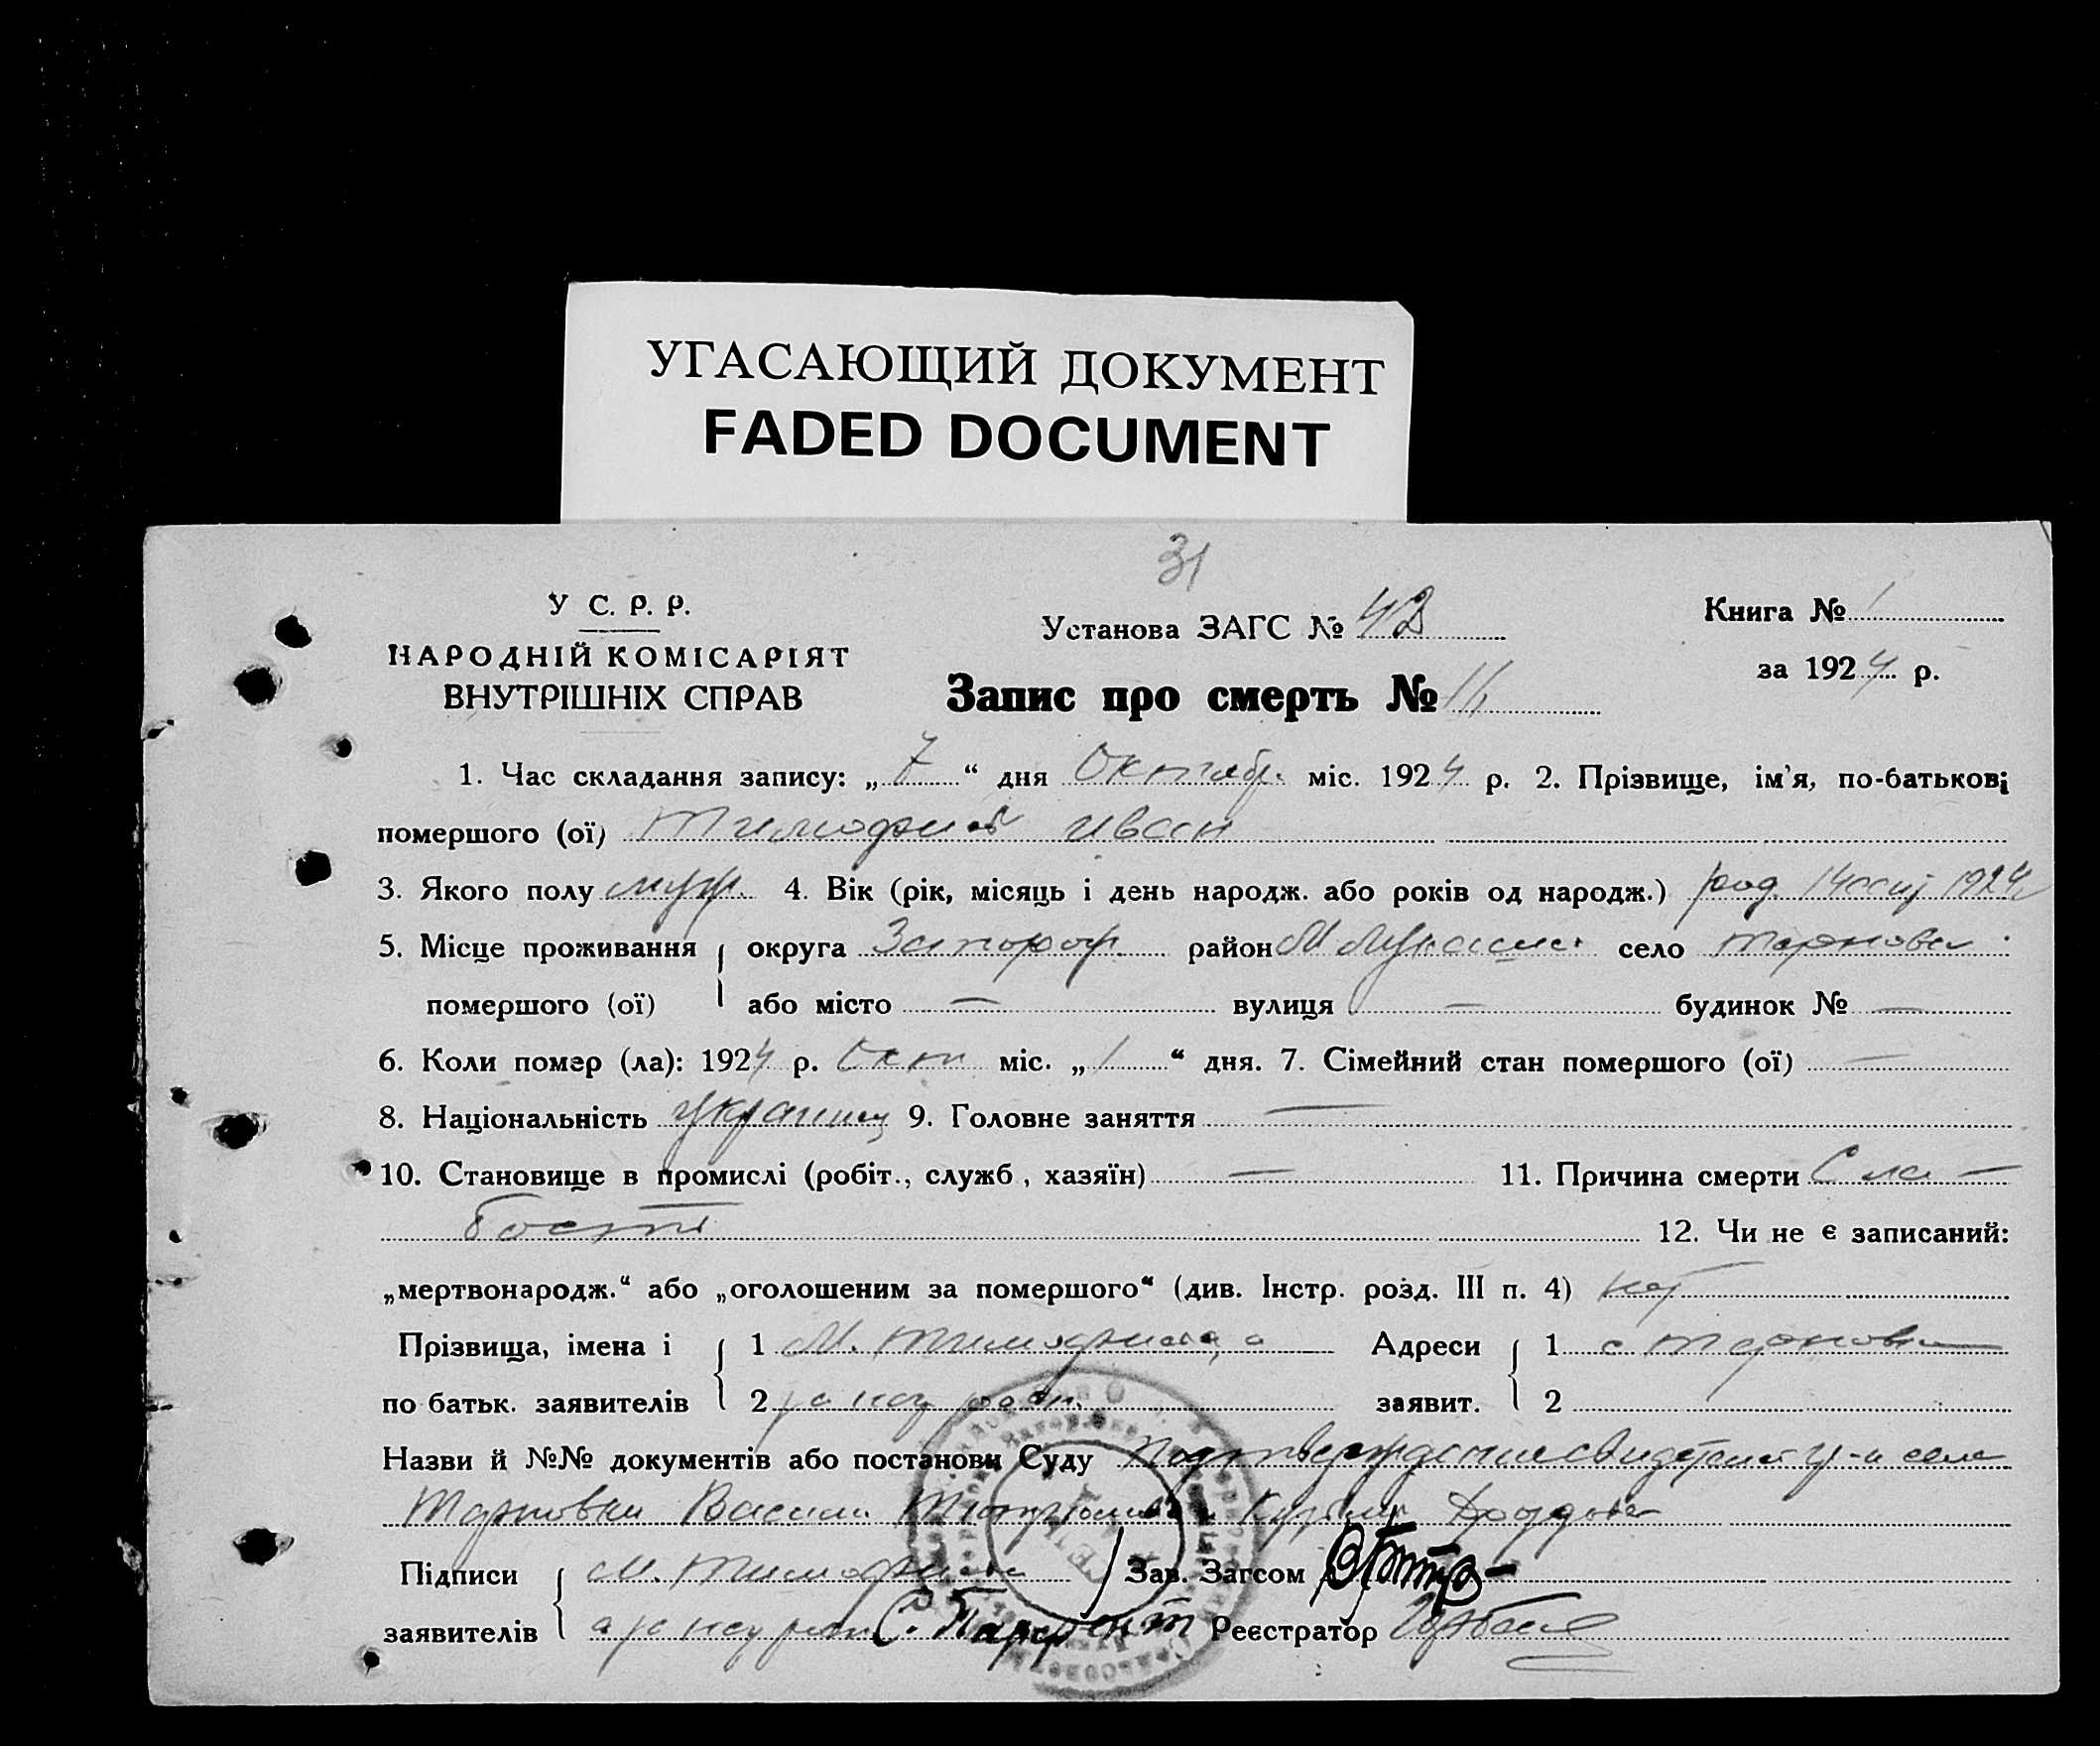 УГАСАЮЩИЙ ДОКУМЕНТ
FADED DOCUMENT
31
У С. Р. Р.
НАРОДНІЙ КОМІСАРІЯТ
ВНУТРІШНІХ СПРАВ
Установа ЗАГС №
Запис про смерть № 11
Книга № 1
за 1924 р.
1. Час складання запису: „7“ дня Октябр. міс. 1924 р. 2. Прізвище, ім'я, по-батькові
помершого (ої) Тимофий иван
3. Якого полу муж. 4. Вік (рік, місяць і день народж. або років од народж.) род. 1924
5. Місце проживання округа Запорож. район село Терновка
помершого (ої) або місто — вулиця — будинок № —
6. Коли помер (ла): 1924 р. Окт міс. „1“ дня. 7. Сімейний стан помершого (ої) —
8. Національність украинец 9. Головне заняття —
10. Становище в промислі (робіт., служб, хазяїн) — 11. Причина смерти Сла-
бость 12. Чи не є записаний:
„мертвонародж.“ або „оголошеним за помершого“ (див. Інстр. розд. III п. 4) нет
Прізвища, імена і 1 М. Адреси 1 с Терновка
по батьк. заявителів 2 заявит. 2
Назви й №№ документів або постанови Суду Подтверждение села
Терновки
Підписи М. Зав. Загсом
заявителів Реєстратор